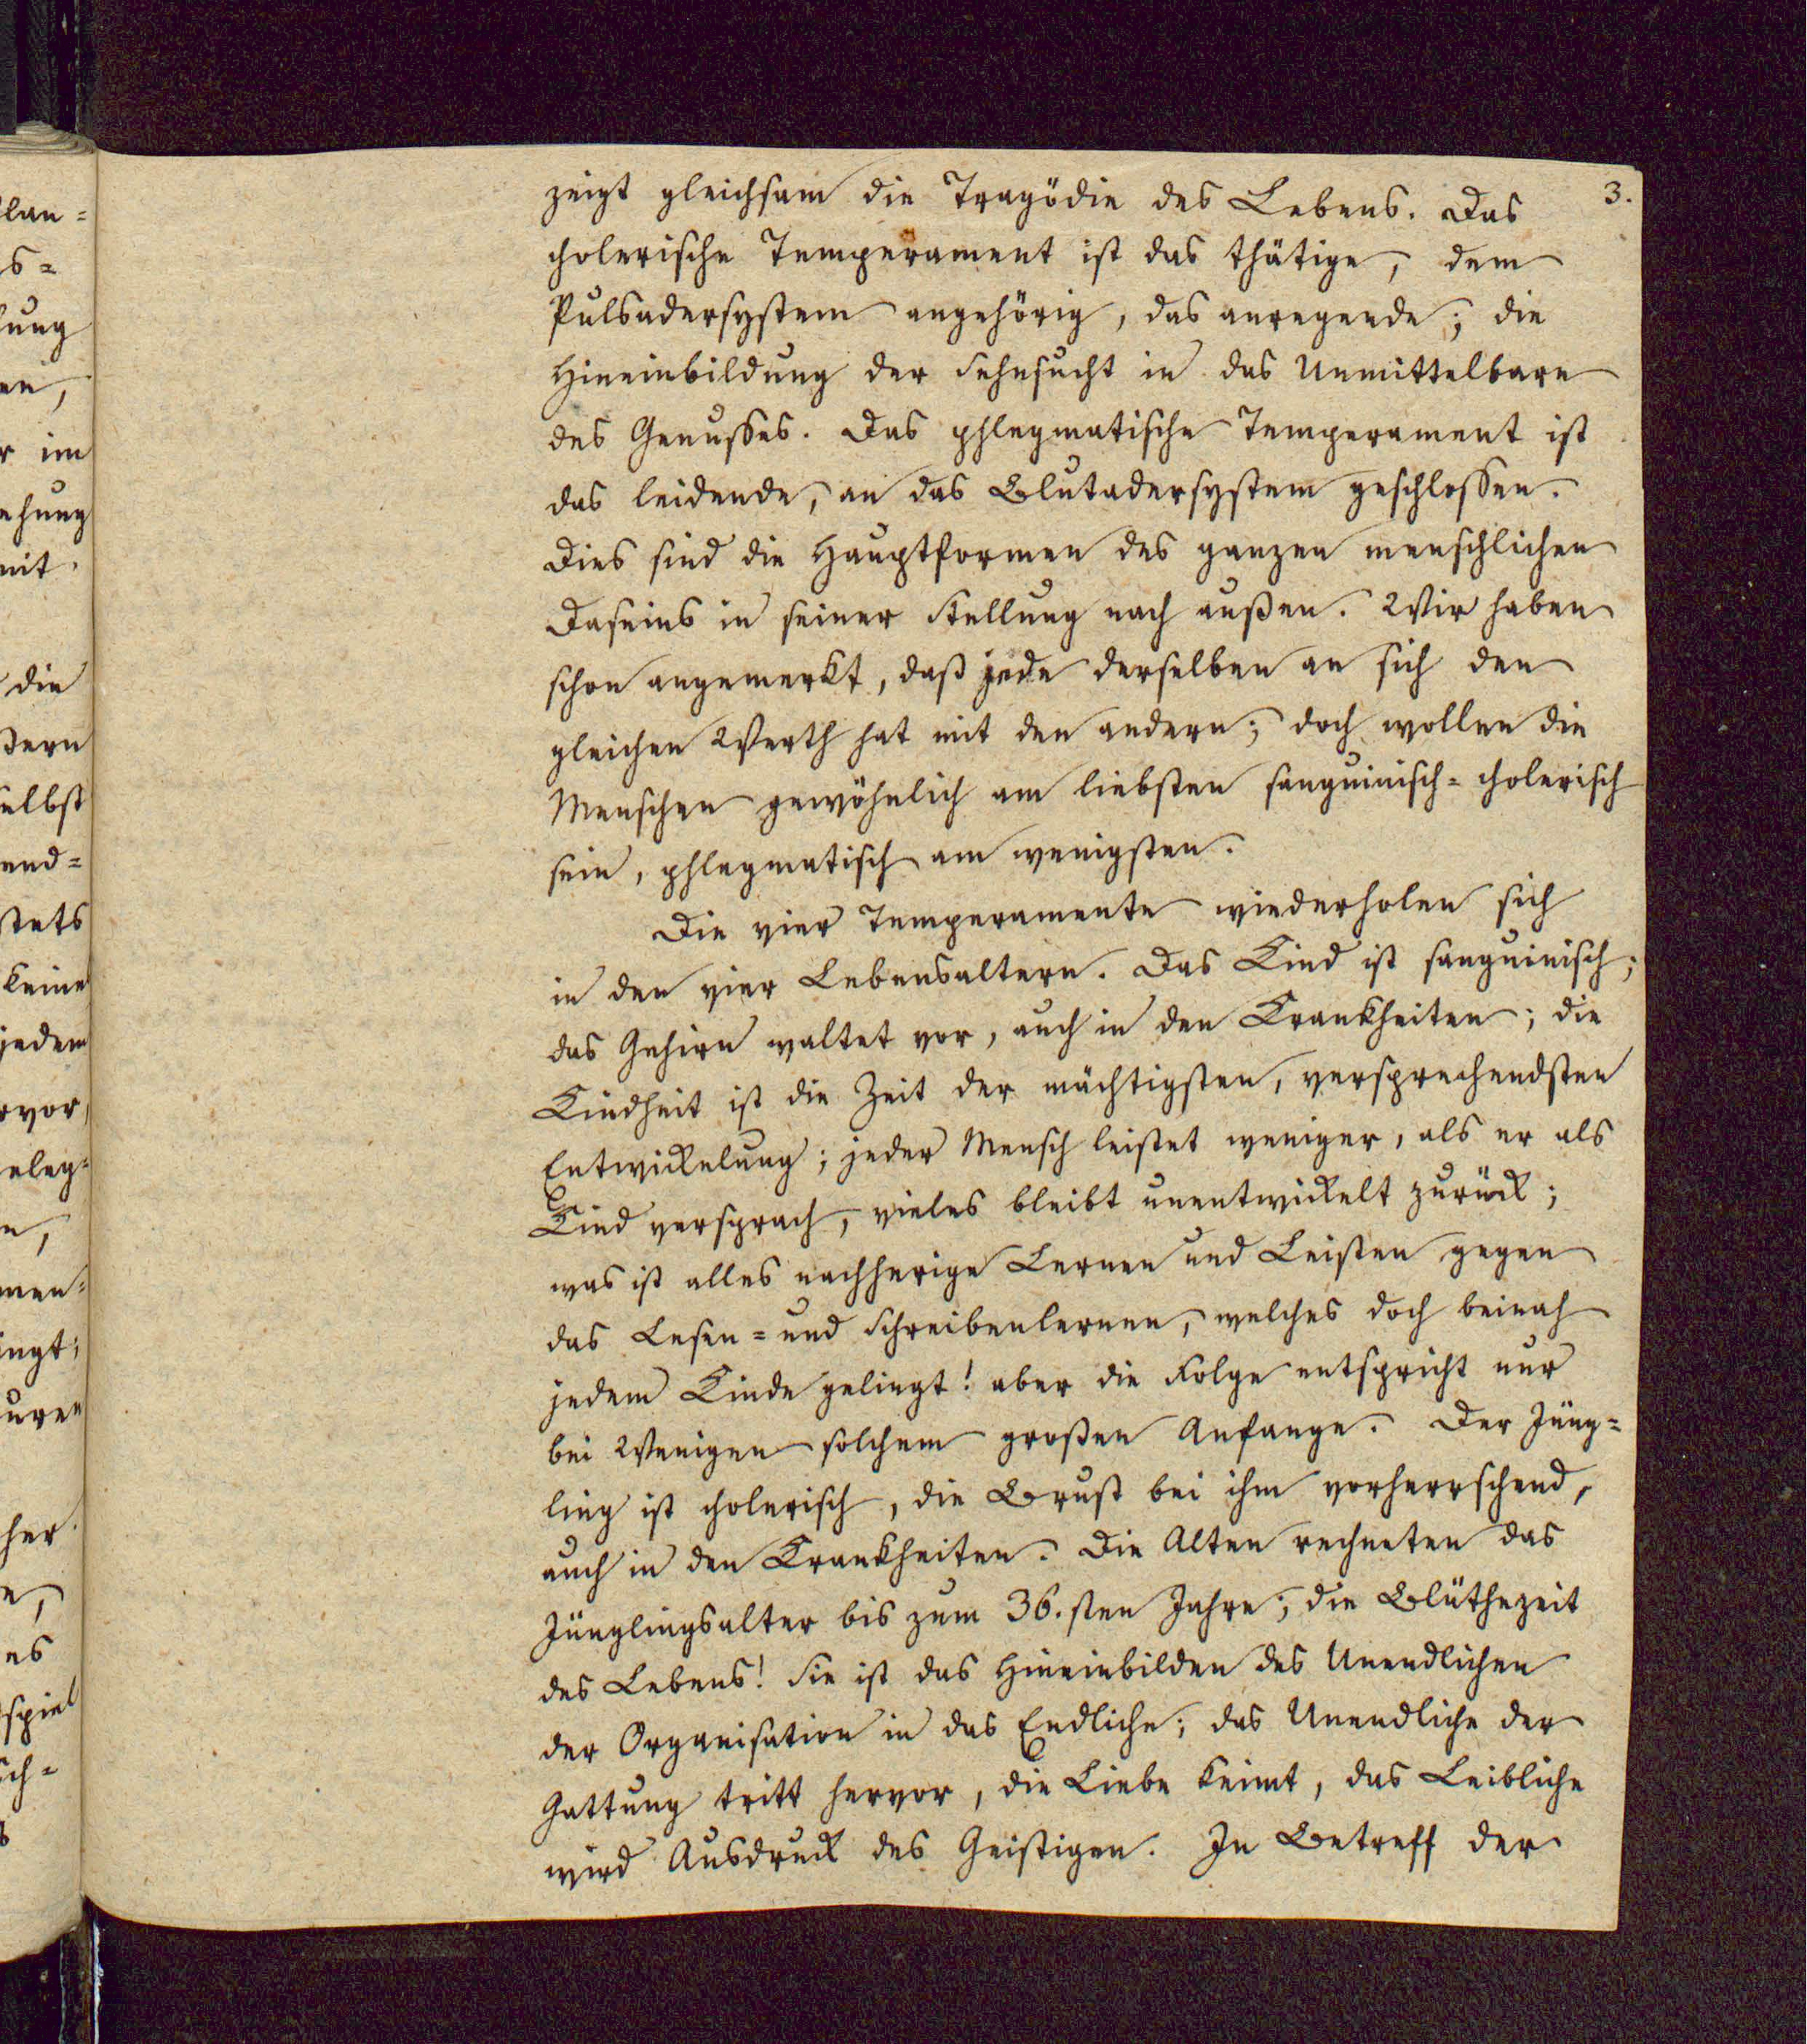 lan-
s-
lung
en,
r im
ehung
mit
die
ßern
selbst
end-
stets
keine
jedem
rvor,
eleg-
n,
men-
ingt;
uren
her
e,
es
spiel
sch-
3.
zeigt gleichsam die Tragödie des Lebens. Das
cholerische Temperament ist das thätige, dem
Pulsadersystem angehörig, das anregende; die
Hineinbildung der Sehnsucht in das Unmittelbare
des Genusses. Das phlegmatische Temperament ist
das leidende, an das Blutadersystem geschlossen.
Dies sind die Hauptformen des ganzen menschlichen
Daseins in seiner Stellung nach außen. Wir haben
schon angemerkt, daß jede derselben an sich den
gleichen Werth hat mit den andern; doch wollen die
Menschen gewöhnlich am liebsten sanguinisch-cholerisch
sein, phlegmatisch am wenigsten.
Die vier Temperamente wiederholen sich
in den vier Lebensaltern. Das Kind ist sanguinisch;
das Gehirn waltet vor, auch in den Krankheiten; die
Kindheit ist die Zeit der mächtigsten, versprechendsten
Entwickelung; jeder Mensch leistet weniger, als er als
Kind versprach, vieles bleibt unentwickelt zurück;
was ist alles nachherige Lernen und Leisten gegen
das Lesen- und Schreibenlernen, welches doch beinah
jedem Kinde gelingt! aber die Folge entspricht nur
bei Wenigen solchem großen Anfange. Der Jüng-
ling ist cholerisch, die Brust bei ihm vorherrschend,
auch in den Krankheiten. Die Alten rechneten das
Jünglingsalter bis zum 36.sten Jahre; die Blüthezeit
des Lebens! Sie ist das Hineinbilden des Unendlichen
der Organisation in das Endliche; das Unendliche der
Gattung tritt hervor, die Liebe keimt, das Leibliche
wird Ausdruck des Geistigen. In Betreff der